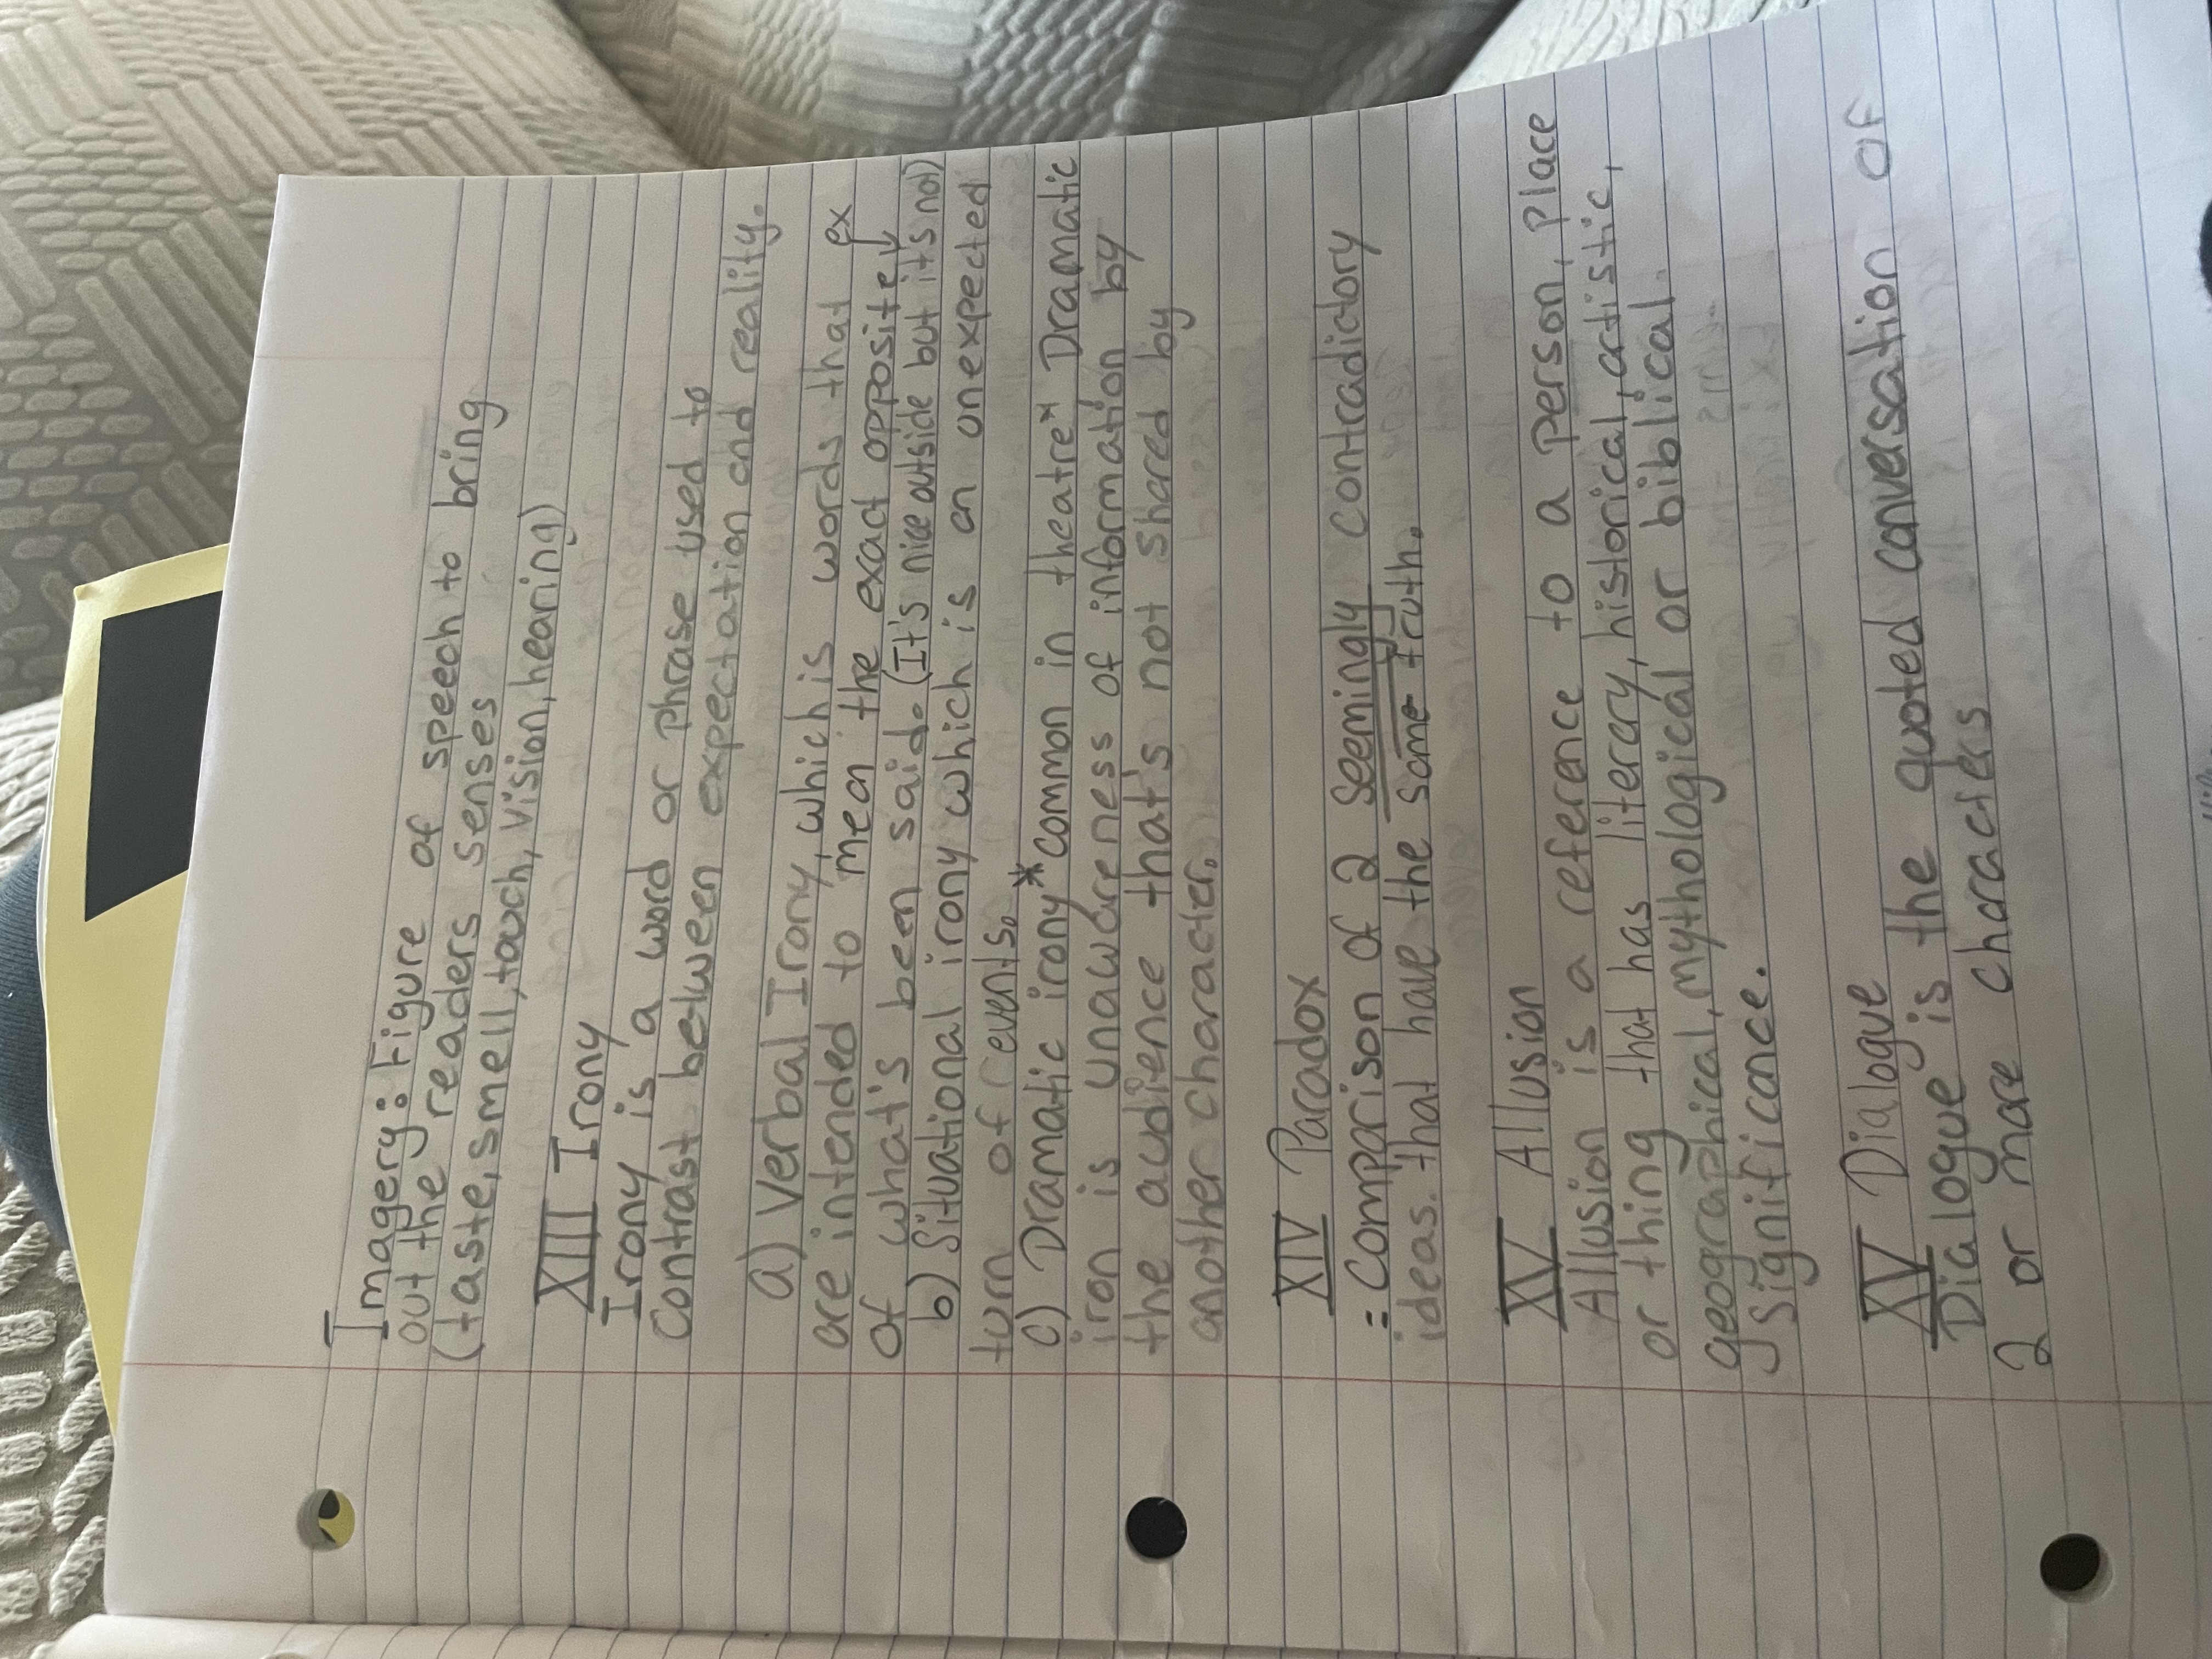 I
Imagery: Figure of speech to bring
out the readers senses
(taste, smell, touch, vision, hearing)
XIII Irony
Irony is a word or phrase used to
contrast between expectation and reality.
a) Verbal Irony, which is words that ex
are intended to mean the exact opposite ↓
of what's been said. (It's nice outside but it's not)
b) Situational irony which is an unexpected
turn of events.
c) Dramatic irony *common in theatre* Dramatic
iron is unawareness of information by
the audience that's not shared by
another character.
XIV Paradox
= Comparison of 2 seemingly contradictory
ideas. that have the same truth.
XV Allusion
Allusion is a reference to a person, place
or thing that has literary, historical, artistic,
geographical, mythological or biblical.
significance.
XV Dialogue
Dialogue is the quoted conversation of
2 or more characters